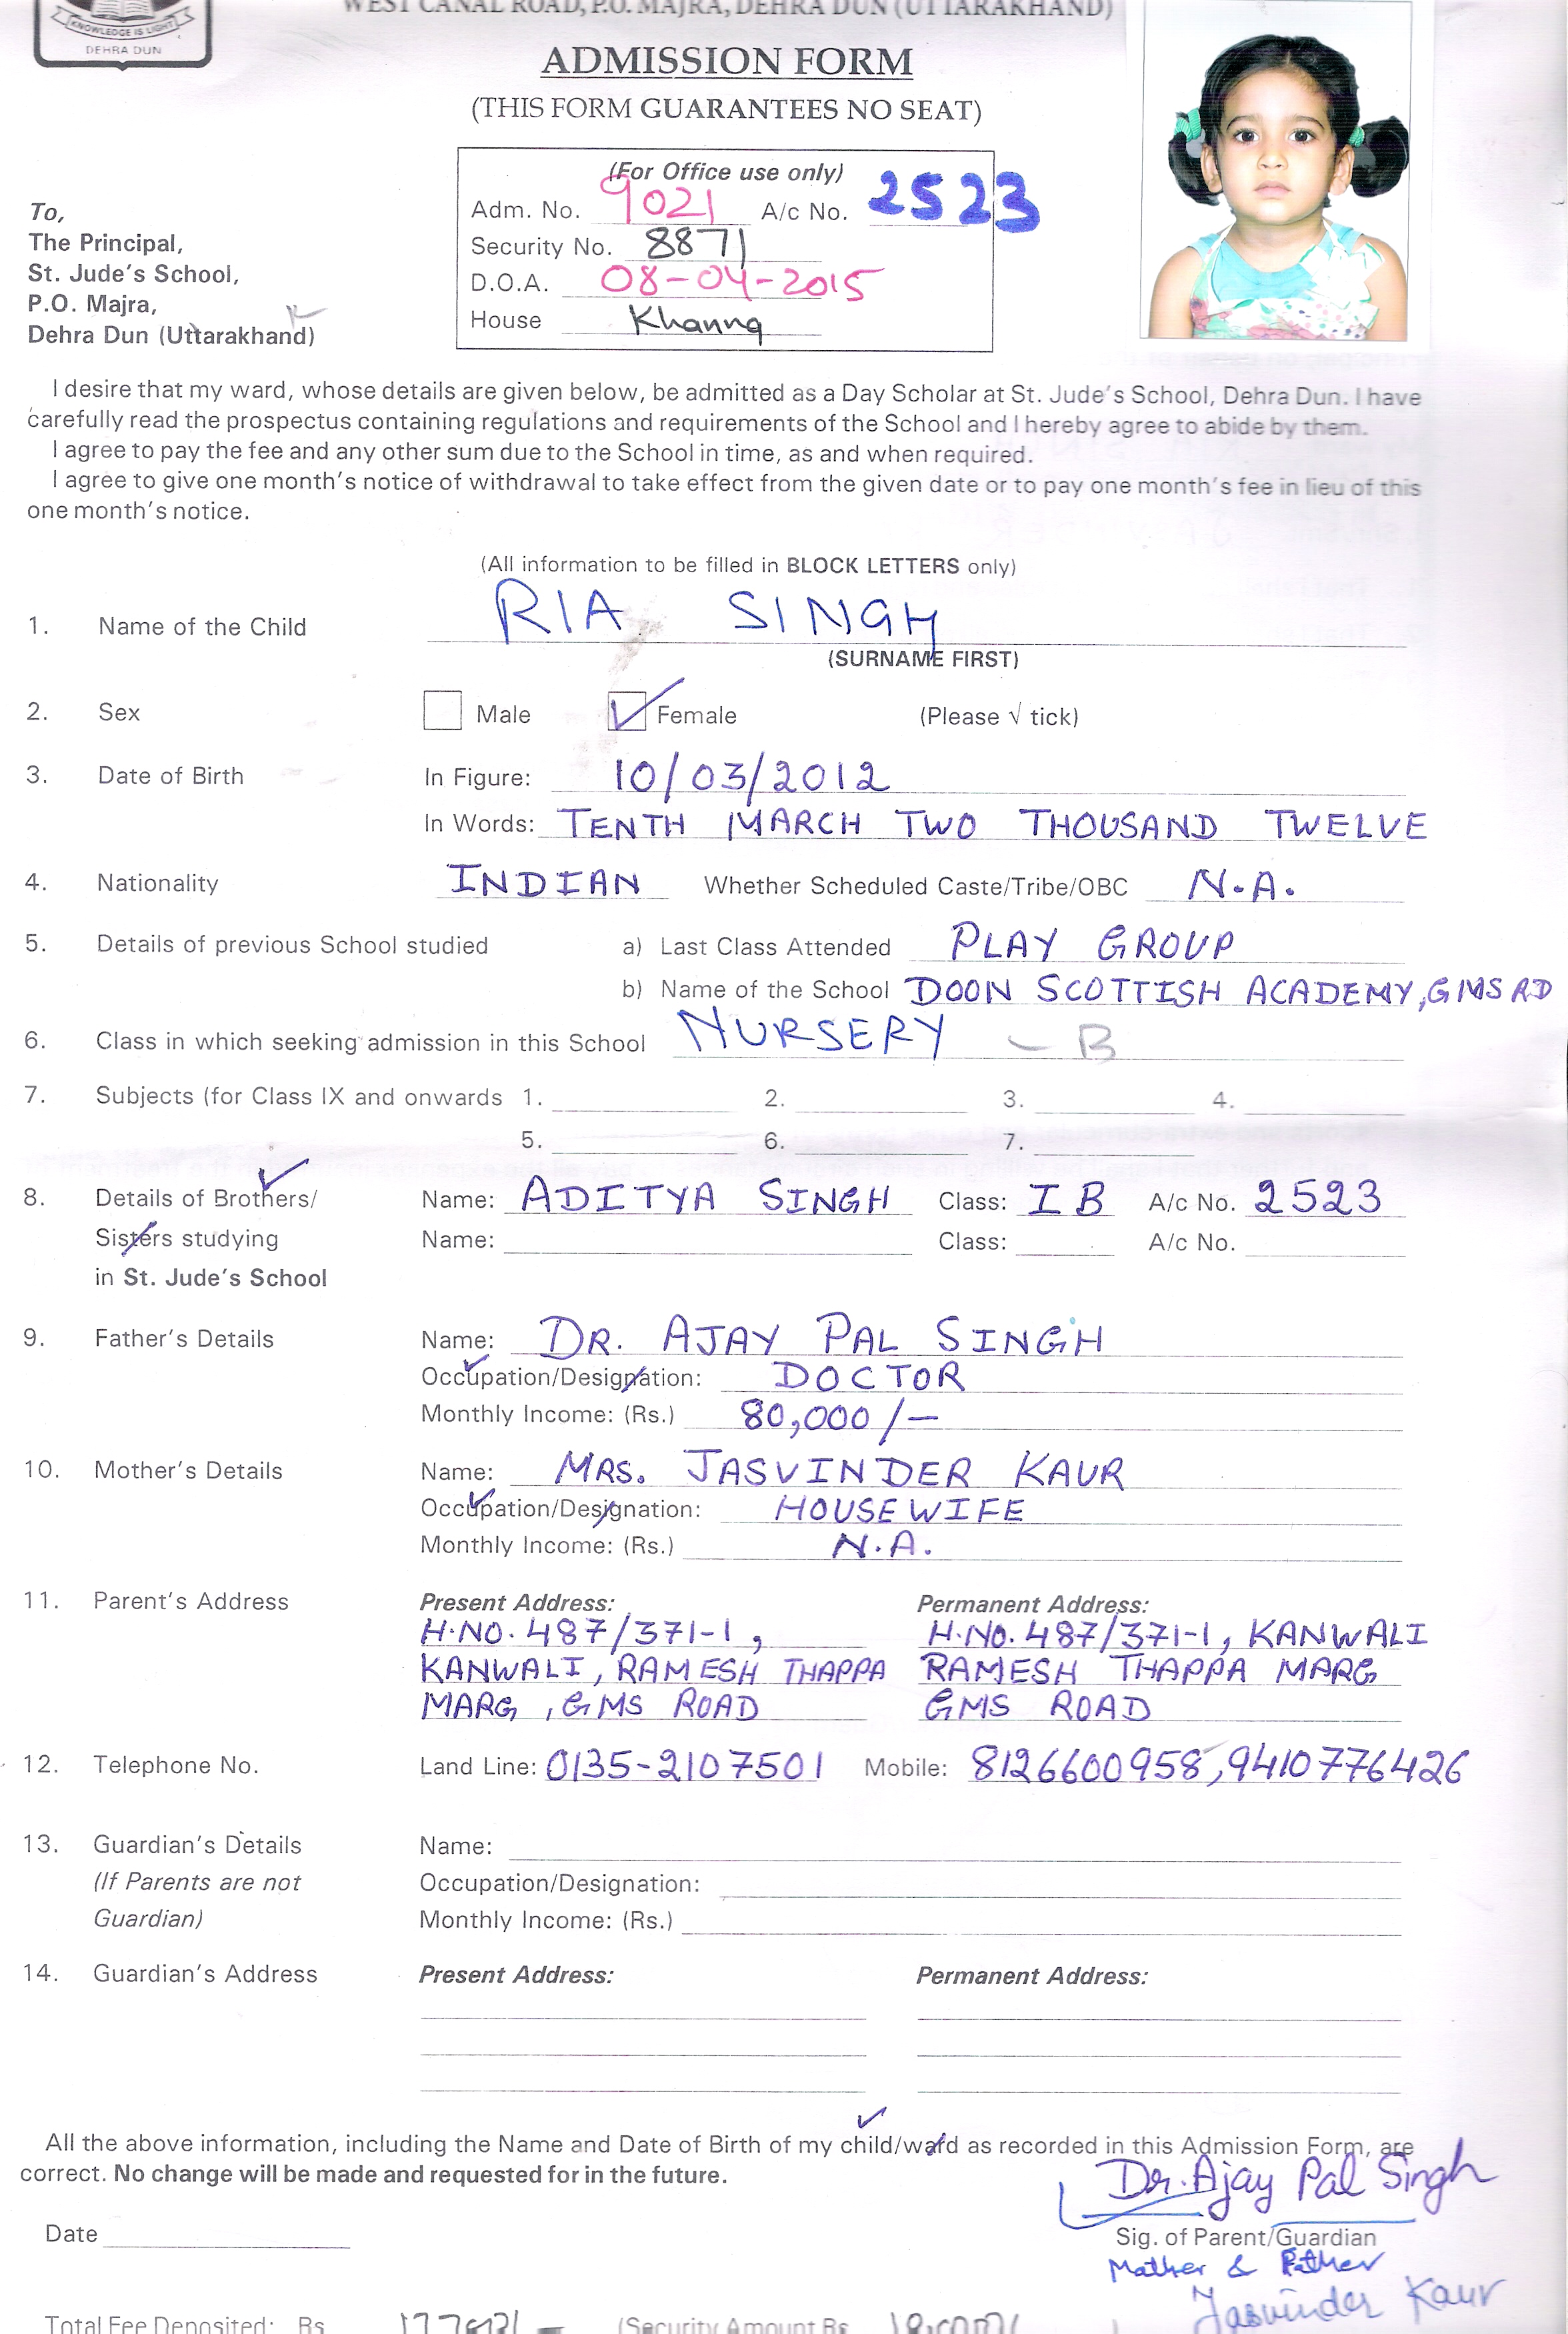 WEST CANAL ROAD, P.O. MAJRA, DEHRA DUN (UTTARAKHAND)
KNOWLEDGE IS LIGHT
DEHRA DUN
ADMISSION FORM
(THIS FORM GUARANTEES NO SEAT)
(For Office use only)
Adm. No. 9021 A/c No. 2523
Security No. 8871
D.O.A. 08-04-2015
House Khanna
To,
The Principal,
St. Jude's School,
P.O. Majra,
Dehra Dun (Uttarakhand)
I desire that my ward, whose details are given below, be admitted as a Day Scholar at St. Jude's School, Dehra Dun. I have
carefully read the prospectus containing regulations and requirements of the School and I hereby agree to abide by them.
I agree to pay the fee and any other sum due to the School in time, as and when required.
I agree to give one month's notice of withdrawal to take effect from the given date or to pay one month's fee in lieu of this
one month's notice.
(All information to be filled in BLOCK LETTERS only)
1. Name of the Child RIA SINGH
(SURNAME FIRST)
2. Sex Male Female (Please √ tick)
3. Date of Birth In Figure: 10/03/2012
In Words: TENTH MARCH TWO THOUSAND TWELVE
4. Nationality INDIAN Whether Scheduled Caste/Tribe/OBC N.A.
5. Details of previous School studied a) Last Class Attended PLAY GROUP
b) Name of the School DOON SCOTTISH ACADEMY, GMS RD
6. Class in which seeking admission in this School NURSERY - B
7. Subjects (for Class IX and onwards 1. 2. 3. 4.
5. 6. 7.
8. Details of Brothers/ Name: ADITYA SINGH Class: I B A/c No. 2523
Sisters studying Name: Class: A/c No.
in St. Jude's School
9. Father's Details Name: DR. AJAY PAL SINGH
Occupation/Designation: DOCTOR
Monthly Income: (Rs.) 80,000/-
10. Mother's Details Name: MRS. JASVINDER KAUR
Occupation/Designation: HOUSEWIFE
Monthly Income: (Rs.) N.A.
11. Parent's Address Present Address: Permanent Address:
H.NO. 487/371-1, H.NO. 487/371-1, KANWALI
KANWALI, RAMESH THAPPA RAMESH THAPPA MARG
MARG, GMS ROAD GMS ROAD
12. Telephone No. Land Line: 0135-2107501 Mobile: 8126600958, 9410776426
13. Guardian's Details Name:
(If Parents are not Occupation/Designation:
Guardian) Monthly Income: (Rs.)
14. Guardian's Address Present Address: Permanent Address:
All the above information, including the Name and Date of Birth of my child/ward as recorded in this Admission Form, are
correct. No change will be made and requested for in the future.
Dr. Ajay Pal Singh
Date Sig. of Parent/Guardian
Mother & Father
Jasvinder Kaur
Total Fee Deposited: Rs (Security Amount Rs